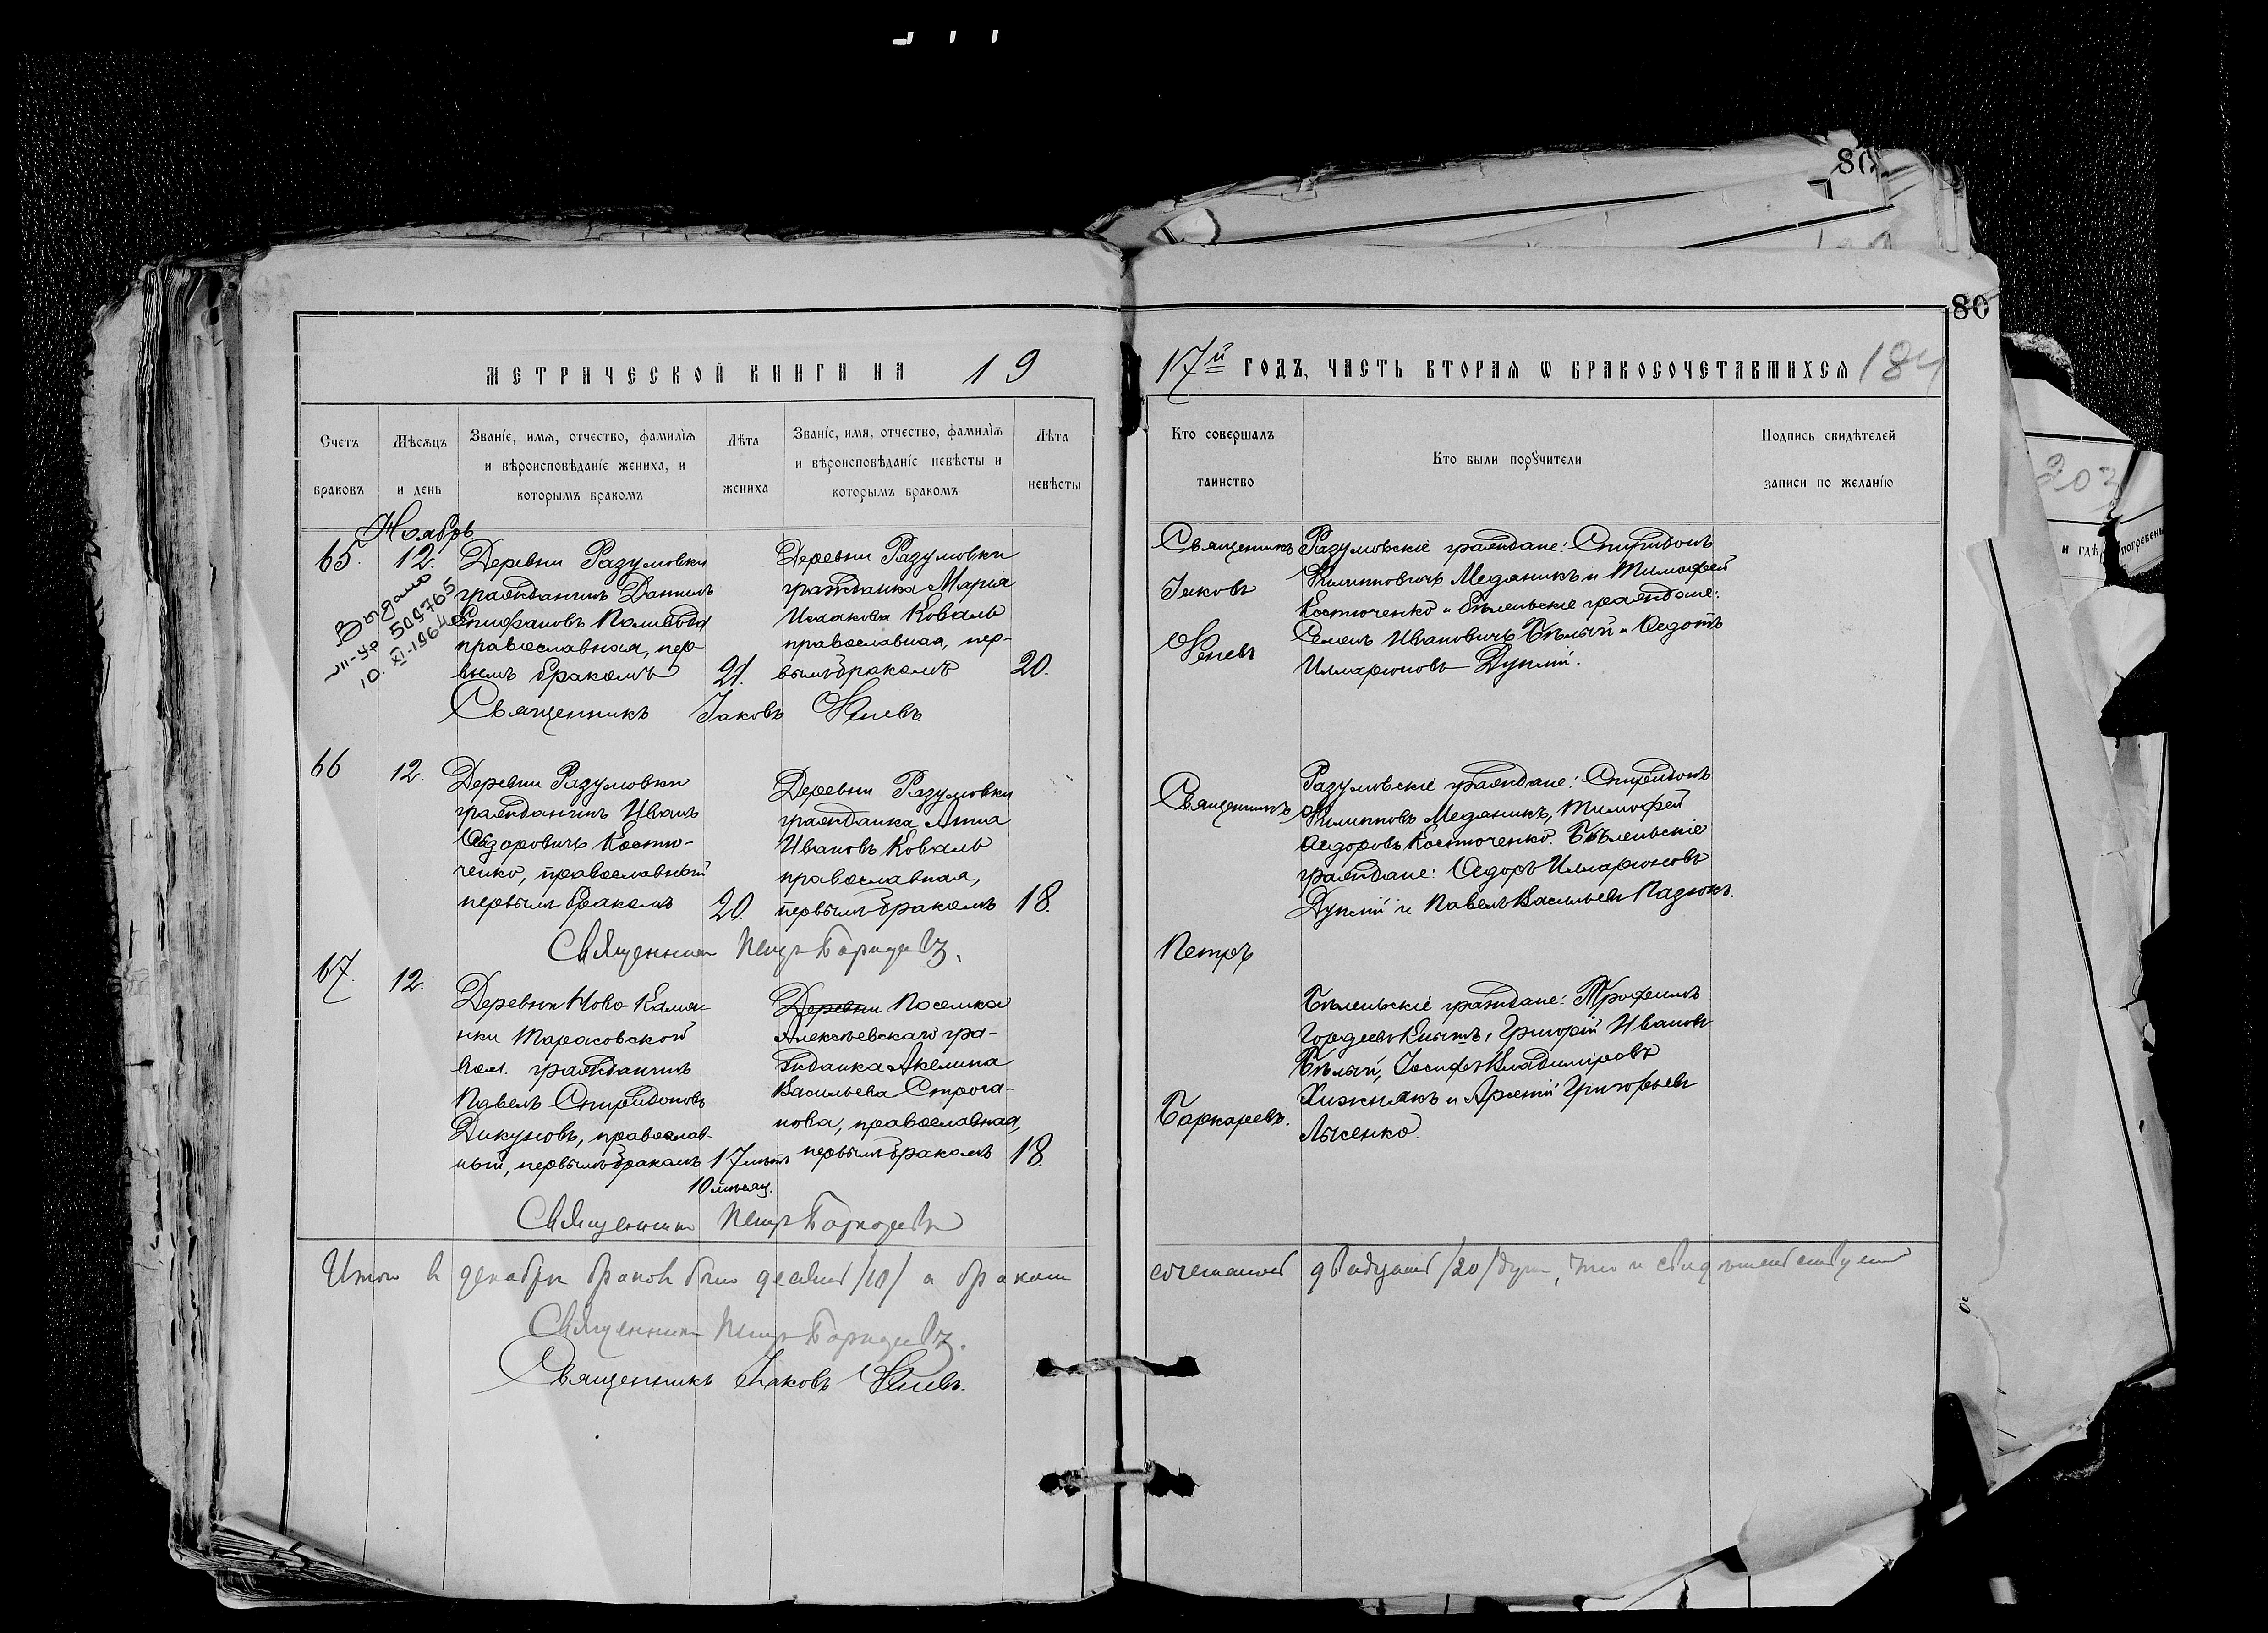 80
80
МЕТРИЧЕСКОЙ КНИГИ НА 19
17й ГОДЪ, ЧАСТЬ ВТОРАЯ Ѡ БРАКОСОЧЕТАВШИХСЯ
Счетъ браковъ
Мѣсяцъ и день
Званіе, имя, отчество, фамилія
и вѣроисповѣданіе жениха, и
которымъ бракомъ
Лѣта жениха
Званіе, имя, отчество, фамилія
и вѣроисповѣданіе невѣсты и
которымъ бракомъ
Лѣта невѣсты
Кто совершалъ
таинство
Кто были порꙋчители
Подпись свидѣтелей
записи по желанію
203
и гдѣ погребены
Ноябрь
65. 12.
Выдано
509765
10. XI-1964
Деревни Разумовки
гражданинъ Даніилъ
Епифановъ
православная, пер-
вымъ бракомъ 21.
Деревни Разумовки
гражданка Марія
Исаакова Коваль
православная, пер-
вымъ бракомъ 20.
Священникъ Іаковъ
Священникъ
Іаковъ
Разумовскіе граждане: Спиридонъ
Филипповичъ Медяникъ и Тимофей
Костюченко и Бѣленьскіе граждане:
Семенъ Ивановичъ Бѣлый и Ѳедотъ
Илларіоновъ
66 12.
Деревни Разумовки
гражданинъ Иванъ
Ѳедоровичъ Костю-
ченко, православный
первымъ бракомъ 20.
Деревни Разумовки
гражданка Анна
Иванова Коваль
православная,
первымъ бракомъ 18.
Священник Петръ
Священникъ
Петръ
Разумовскіе граждане: Спиридонъ
Филипповъ Медяникъ, Тимофей
Ѳедоровъ Костюченко. Бѣленьскіе
граждане: Ѳедоръ Илларіоновъ
и Павелъ Васильевъ Падюкъ.
67. 12.
Деревни Ново-Камен-
ки Тарасовской
вол. гражданинъ
Павелъ Спиридоновъ
Дикуновъ, православ-
ный, первымъ бракомъ 17 лѣтъ
10 мѣсяц.
Деревни Поселка
Алексѣевскаго гра-
жданка Акелина
Васильева Строга-
нова, православная,
первымъ бракомъ 18.
Священник Петръ
Баркаревъ.
Бѣленьскіе граждане: Трофимъ
Гордѣевъ, Григорій Ивановъ
Бѣлый, Іосифъ Владиміровъ
Хижнякъ и Арсеній Григорьевъ
Лысенко.
Итого в декабрѣ браков было десять /10/ а браком
сочетаной двадцать /20/ душ, что и свидѣтельствуем
Священник Петръ
Священникъ Іаковъ